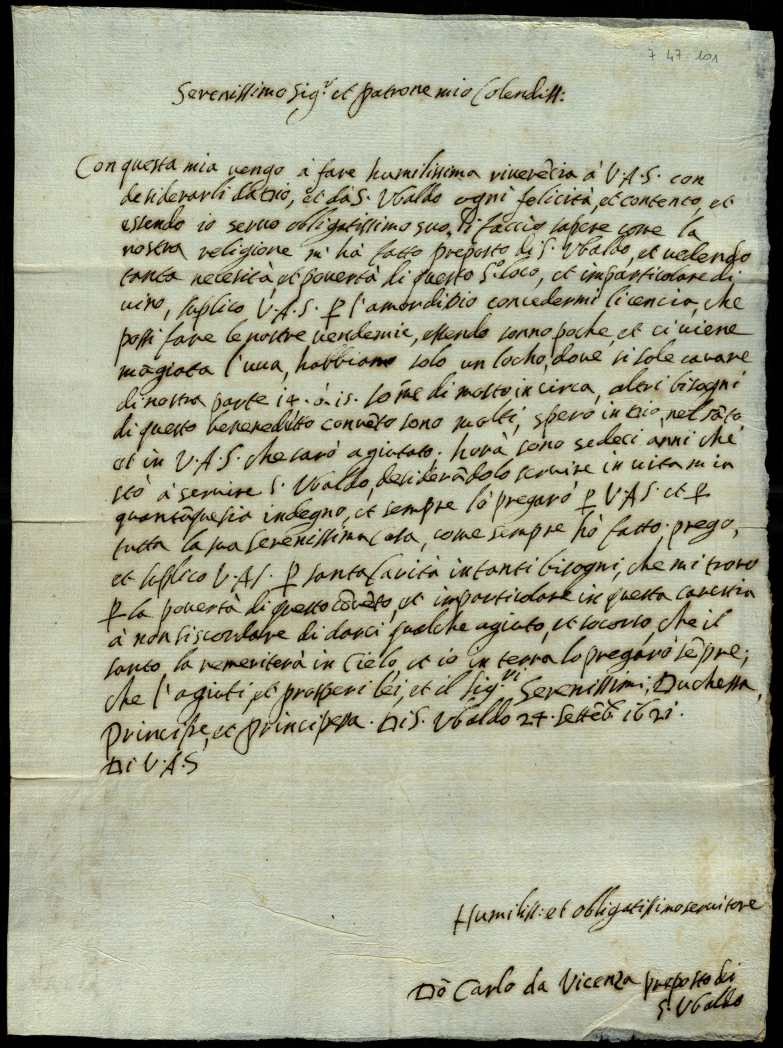 7 47-101
Serenissimo Sig.r et patrone mio Colendiss:
Con questa mia vengo à fare humilissima riverēcia à V.A.S. con
desiderarli da Dio, et dà S. Vbaldo ogni felicità, et contento, et
essendo io servo obligatissimo suo, li faccio sapere come la
nostra religione m' hà fatto preposto di S. Vbaldo, et vedendo
tanta necesità et povertà di questo S.to loco, et imparticolare di
vino, suplico V.A.S. ꝑ l'amor di Dio concedermi licencia, che
possi fare le nostre vendemie, essendo sonno poche, et ci viene
magiata l'uua, habbiamo solo un locho, dove si sole cavare
di nostra parte 14. ò 15. some di mosto in circa, altri bisogni
di questo convēto sono molti, spero in Dio, nel sāto,
et in V.A.S. che sarò agiutato. horà sono sedeci anni che
stò à servire S. Vbaldo, desiderādolo servire in vita mia
quantūque sia indegno, et sempre lò pregarò ꝑ V.A.S. et ꝑ
tutta la sua Serenissima Casa, come sempre hò fatto. prego,
et suplico V.A.S. ꝑ santa Carità in tanti bisogni, che mi trovo
ꝑ la povertà di questo cōvēto, et imparticolare in questa carestia
à non si scordare di darci qualche agiuto, et socorso, che il
santo la remeriterà in Cielo, et io in terra lo pregarò sēpre,
che l'agiuti, et prosperi lei, et il Sig.ri Serenissimi, Duchessa,
Principe, et Principessa. Di S. Vbaldo 24. Settēb. 1621.
Di V.A.S
Humiliss: et obligatissimo servitore
Dō Carlo da Vicenza preposto di
S. Vbaldo